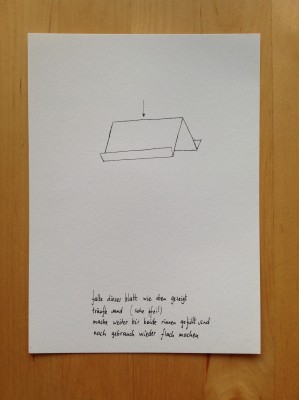 falte dieses blatt wie oben gezeigt
träufle sand (siehe pfeil)
mache weiter bis beide rinnen gefüllt sind
nach gebrauch wieder flach machen